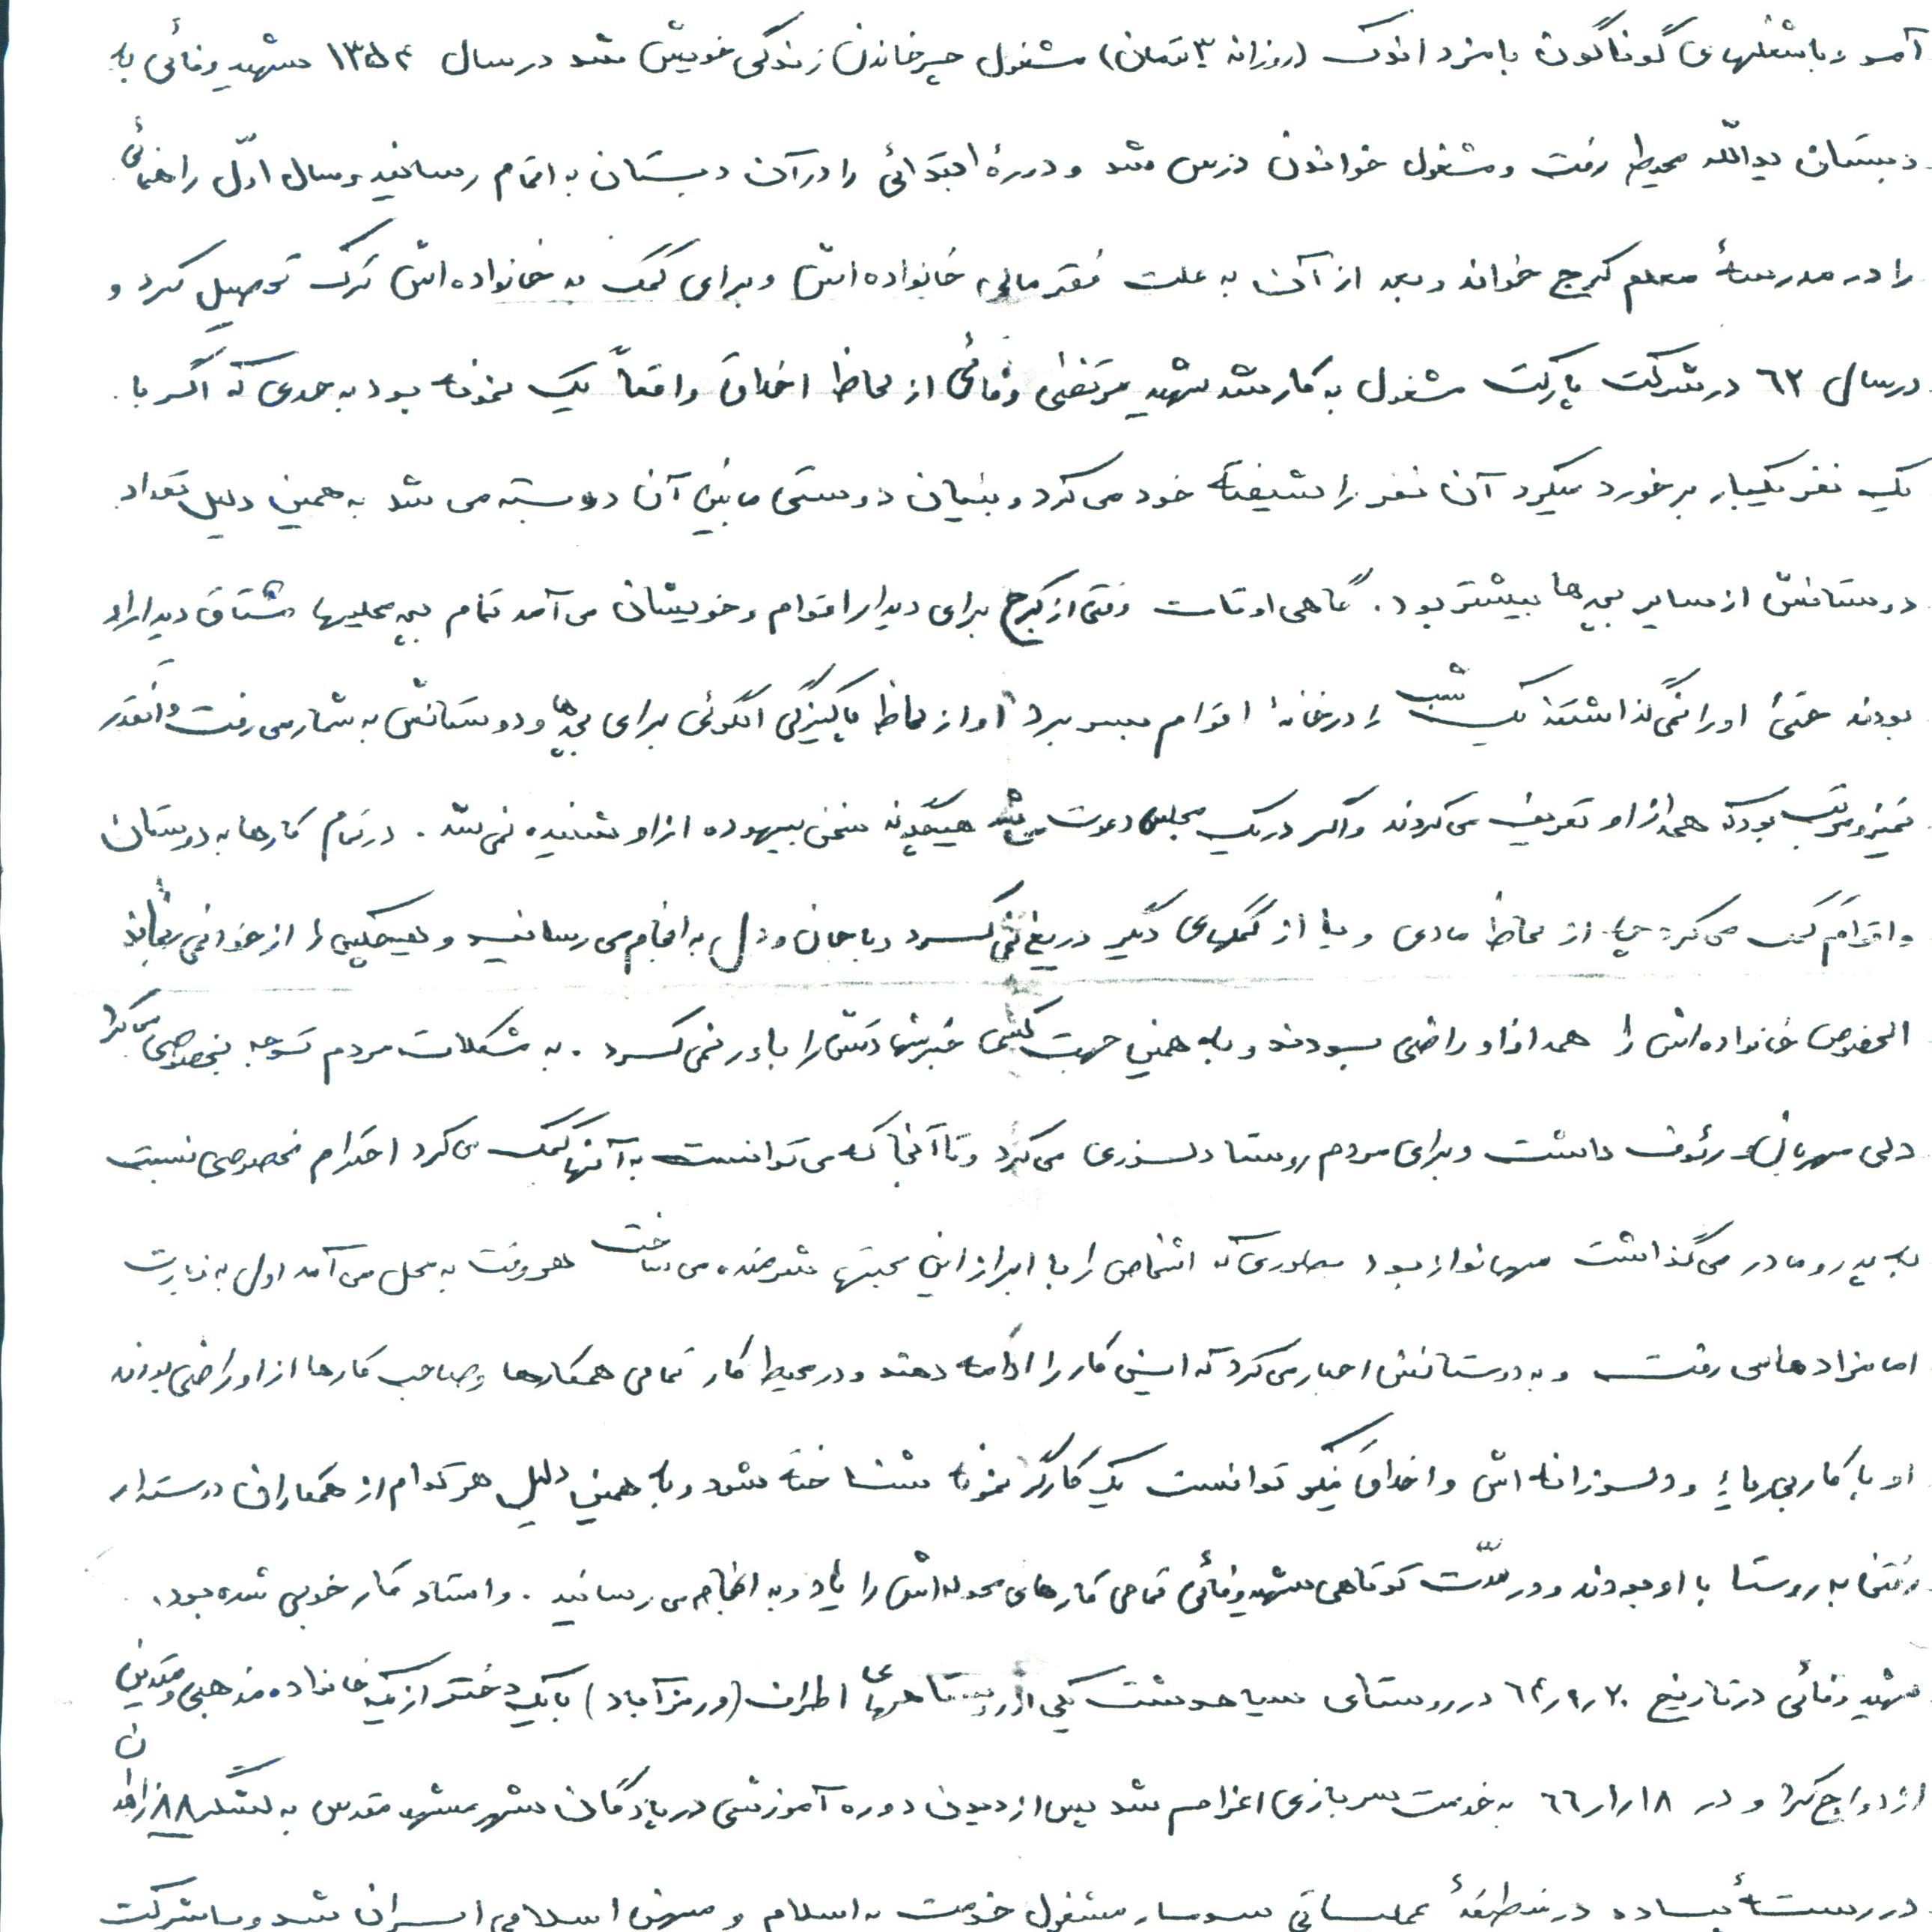 آمد و با شغلهای گوناگون با مزد اندک (روزانه ۳ تومان) مشغول چرخاندن زندگی خویش شد در سال ۱۳۵۴ شهید وفائی به
دبستان یدالله محیط رفت و مشغول خواندن درس شد و دورهٔ ابتدائی را در آن دبستان به اتمام رسانید و سال اوّل راهنمائی
را در مدرسهٔ معلم کرج خواند و بعد از آن به علت فقر مالی خانواده اش و برای کمک به خانواده اش ترک تحصیل کرد و
در سال ۶۳ در شرکت پارکت مشغول به کار شد شهید مرتضی وفائی از لحاظ اخلاق واقعاً یک نمونه بود به حدی که اگر با
یک نفر یکبار برخورد میکرد آن نفر را شیفته خود می کرد و بنیان دوستی مابین آن دو بسته می شد به همین دلیل تعداد
دوستانش از سایر بچه ها بیشتر بود. گاهی اوقات وقتی از کرج برای دیدار اقوام و خویشان می آمد تمام بچه محلیها مشتاق دیدار او
بودند حتی او را نمی گذاشتند یک شب را در خانهٔ اقوام بسر برد او از لحاظ پاکیزگی الگوئی برای بچه ها و دوستانش به شمار می رفت و آنقدر
تمیز و مرتب بود که همه از او تعریف می کردند و اگر در یک مجلس دعوت می شد هیچگونه سخن بیهوده از او شنیده نمی شد. در تمام کارها به دوستان
و اقوام کمک می کرد چه از لحاظ مادی و یا از کمکهای دیگر دریغ نمی کرد و با جان و دل به انجام می رسانید و هیچکس را از خود نمی رنجاند
الخصوص خانواده اش را همه از او راضی بودند و به همین جهت کسی خبر شهادتش را باور نمی کرد. به مشکلات مردم توجه بخصوصی می کرد
دلی مهربان و رئوف داشت و برای مردم روستا دلسوزی می کرد و تا آنجا که می توانست به آنها کمک می کرد احترام مخصوصی نسبت
به پدر و مادر می گذاشت مهمانواز بود بطوری که اشخاص را با ابراز این محبتها شرمنده می ساخت هر وقت به محل می آمد اول به زیارت
امامزاده ها می رفت و به دوستانش اجبار می کرد که این کار را ادامه دهند و در محیط کار تمامی همکارها و صاحب کارها از او راضی بودند
او با کار بی ریا و دلسوزانه اش و اخلاق نیکو توانست یک کارگر نمونه شناخته شود و به همین دلیل هر کدام از همکاران دوستدار
رفتن به روستا با او بودند و در مدّت کوتاهی شهید وفائی تمامی کارهای محوله اش را یاد و به انجام می رسانید. و استاد کار خوبی شده بود.
شهید وفائی در تاریخ ۶۴٫۹٫۲۰ در روستای سیاهدشت یکی از روستاهای اطراف (ورمزآباد) با یک دختر از یک خانواده مذهبی و متدین
ازدواج کرد و در ۶۶٫۱٫۱۸ به خدمت سربازی اعزام شد پس از دیدن دوره آموزشی در پادگان شهر مشهد مقدس به لشگر ۸۸ زاهدان
در رستهٔ پیاده در منطقهٔ عملیاتی سومار مشغول خدمت به اسلام و میهن اسلامی ایران شد و با شرکت